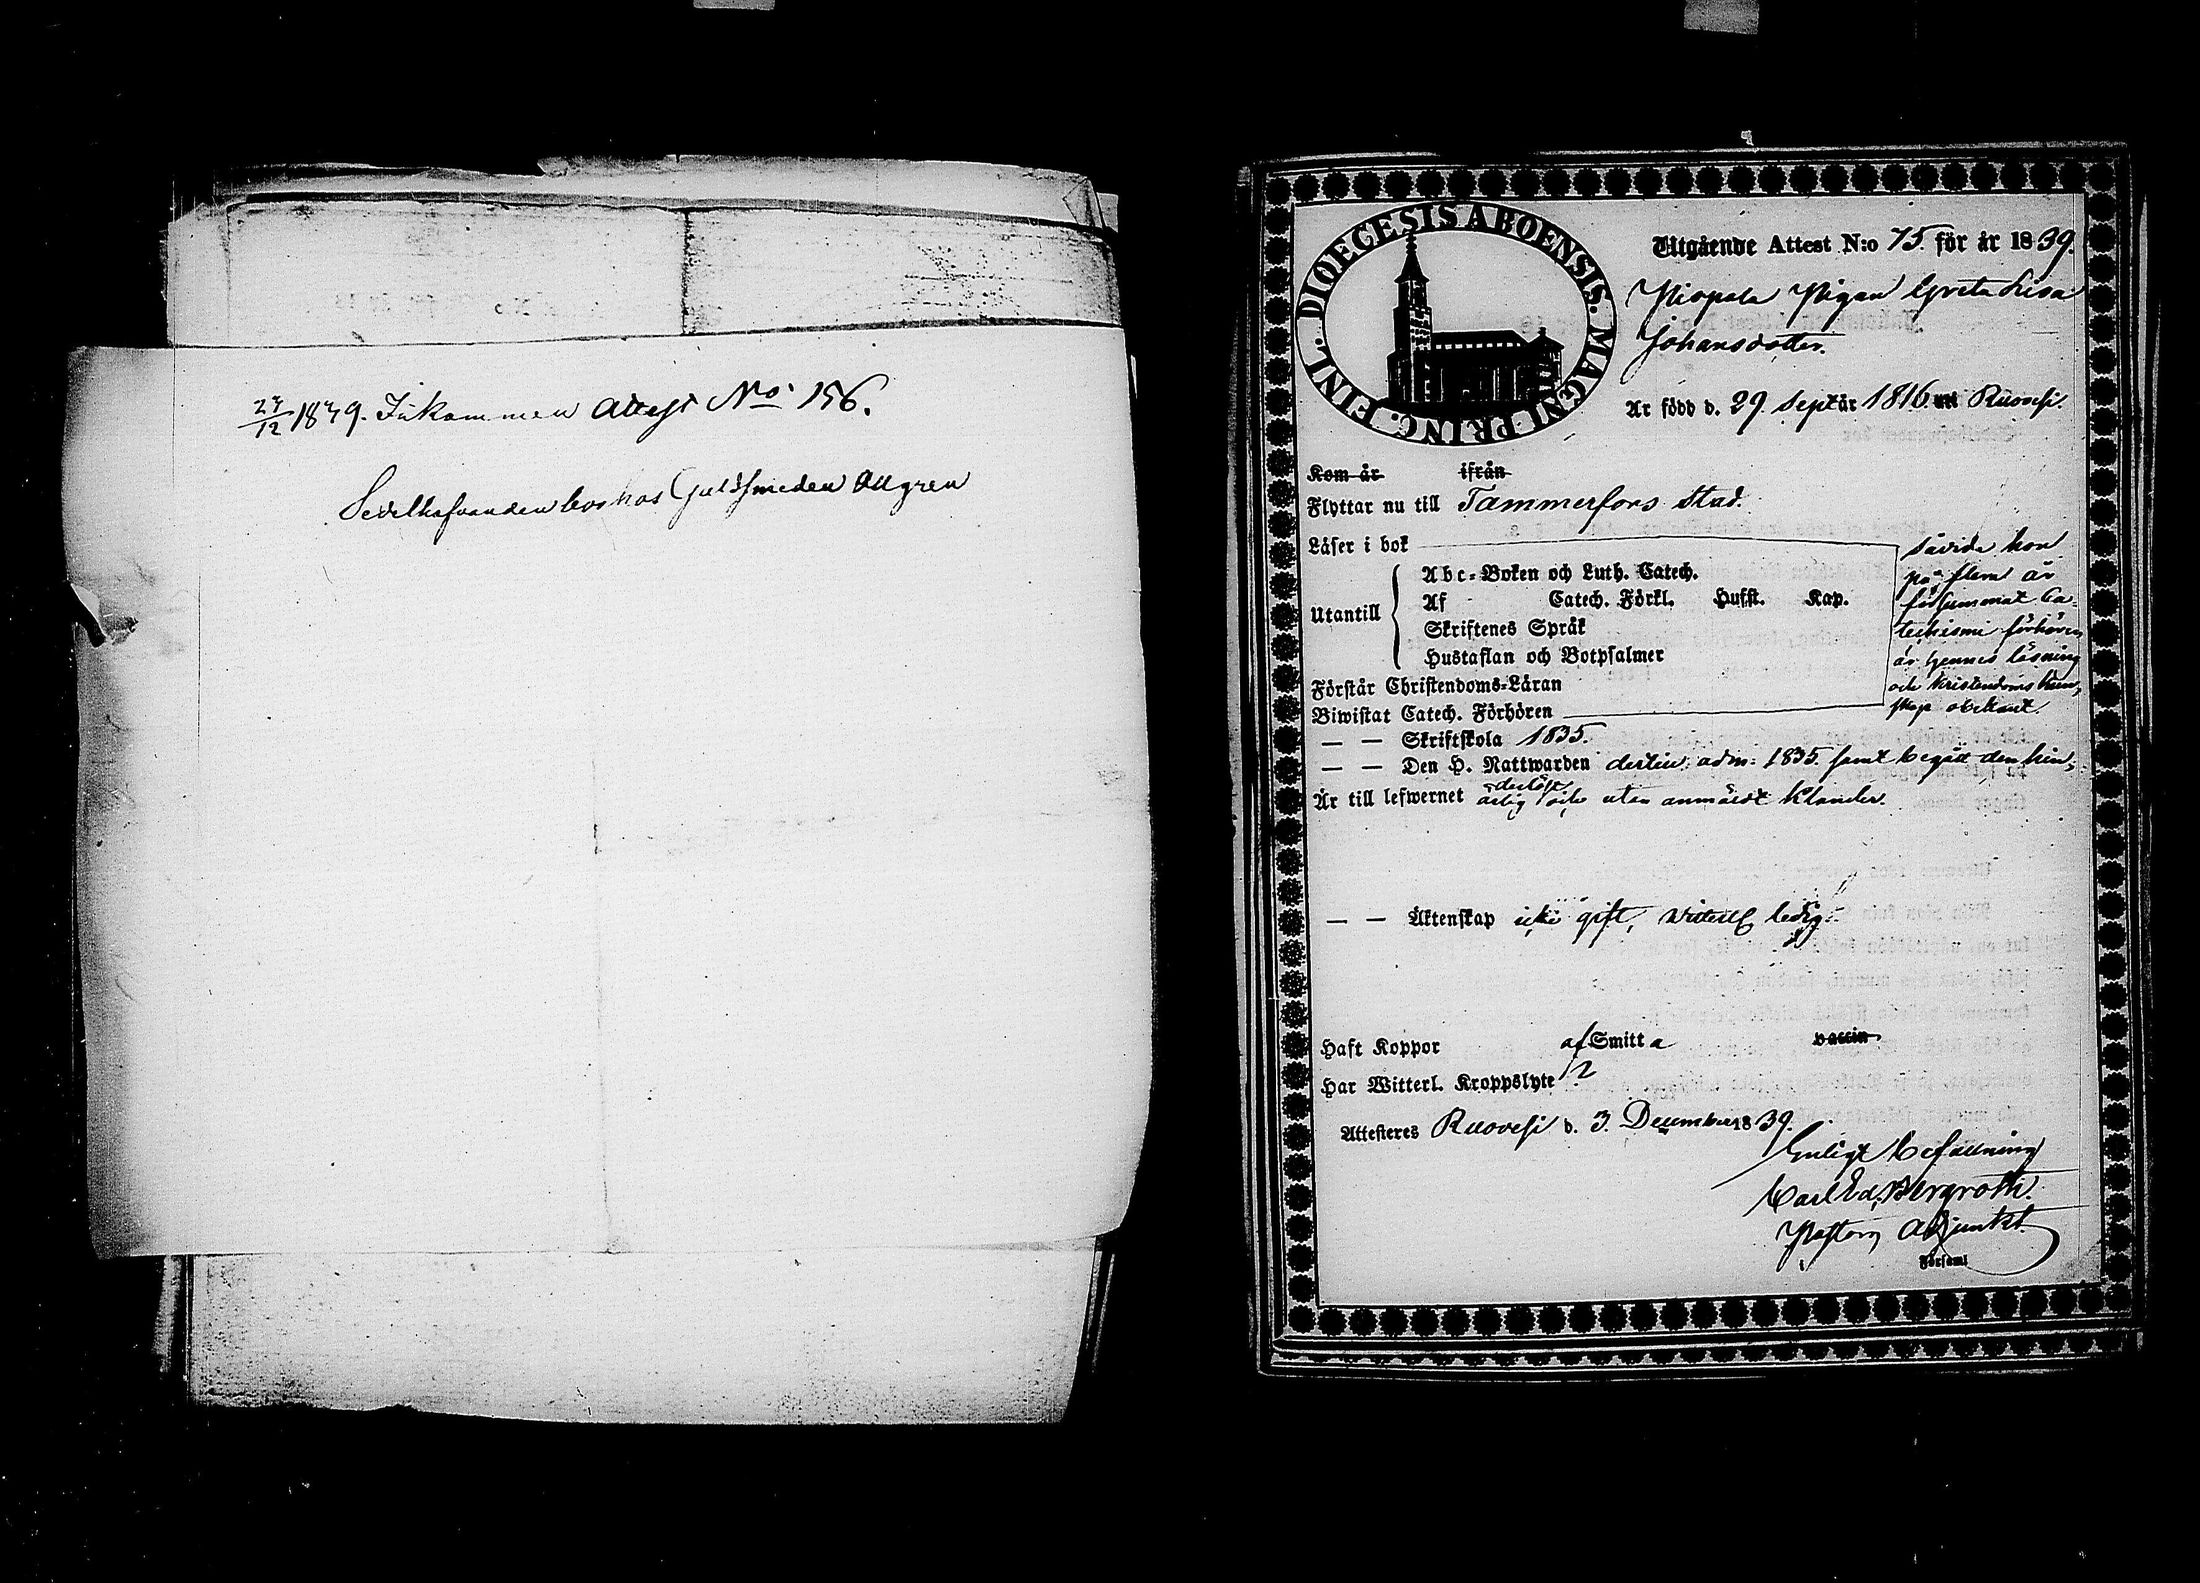 27/12 1839. Inkommen Attest No 156.
Sedelhafvanden bor hos Guldsmeden Allgren
DIOECESIS ABOENSIS. MAGNI PRINC. FINL.
Utgående Attest N:o 75 för år 1839.
Pispala Pigan Greta Lisa
Johansdotter.
Är född d. 29 Sept år 1816 uti Ruovesi.
Kom år ifrån
Flyttar nu till Tammerfors Stad.
Läser i bok
Utantill
Abc-Boken och Luth. Catech.
Af Catech. Förkl. Hufst. Kap.
Skriftenes Språk
Hustaflan och Botpsalmer
Förstår Christendoms-Läran
Biwistat Catech. Förhören
såvida hon
på flera år
försummat Ca-
techismi förhören
är hennes läsning
och kristendoms kun-
skap obekant.
— — Skriftskola 1835.
— — Den H. Nattwarden dertill adm: 1835 samt begått den hin-
derlöst
Är till lefwernet ärlig och utan anmäldt klander.
— — Äktenskap icke gift, witterl. ledig.
Haft Koppor af Smitta vaccin
Har Witterl. Kroppslyte
Attesteres Ruovesi d. 3 December 1839.
Enligt befallning
Carl Ed. Bergroth.
Pastors Adjunkt.
Församl